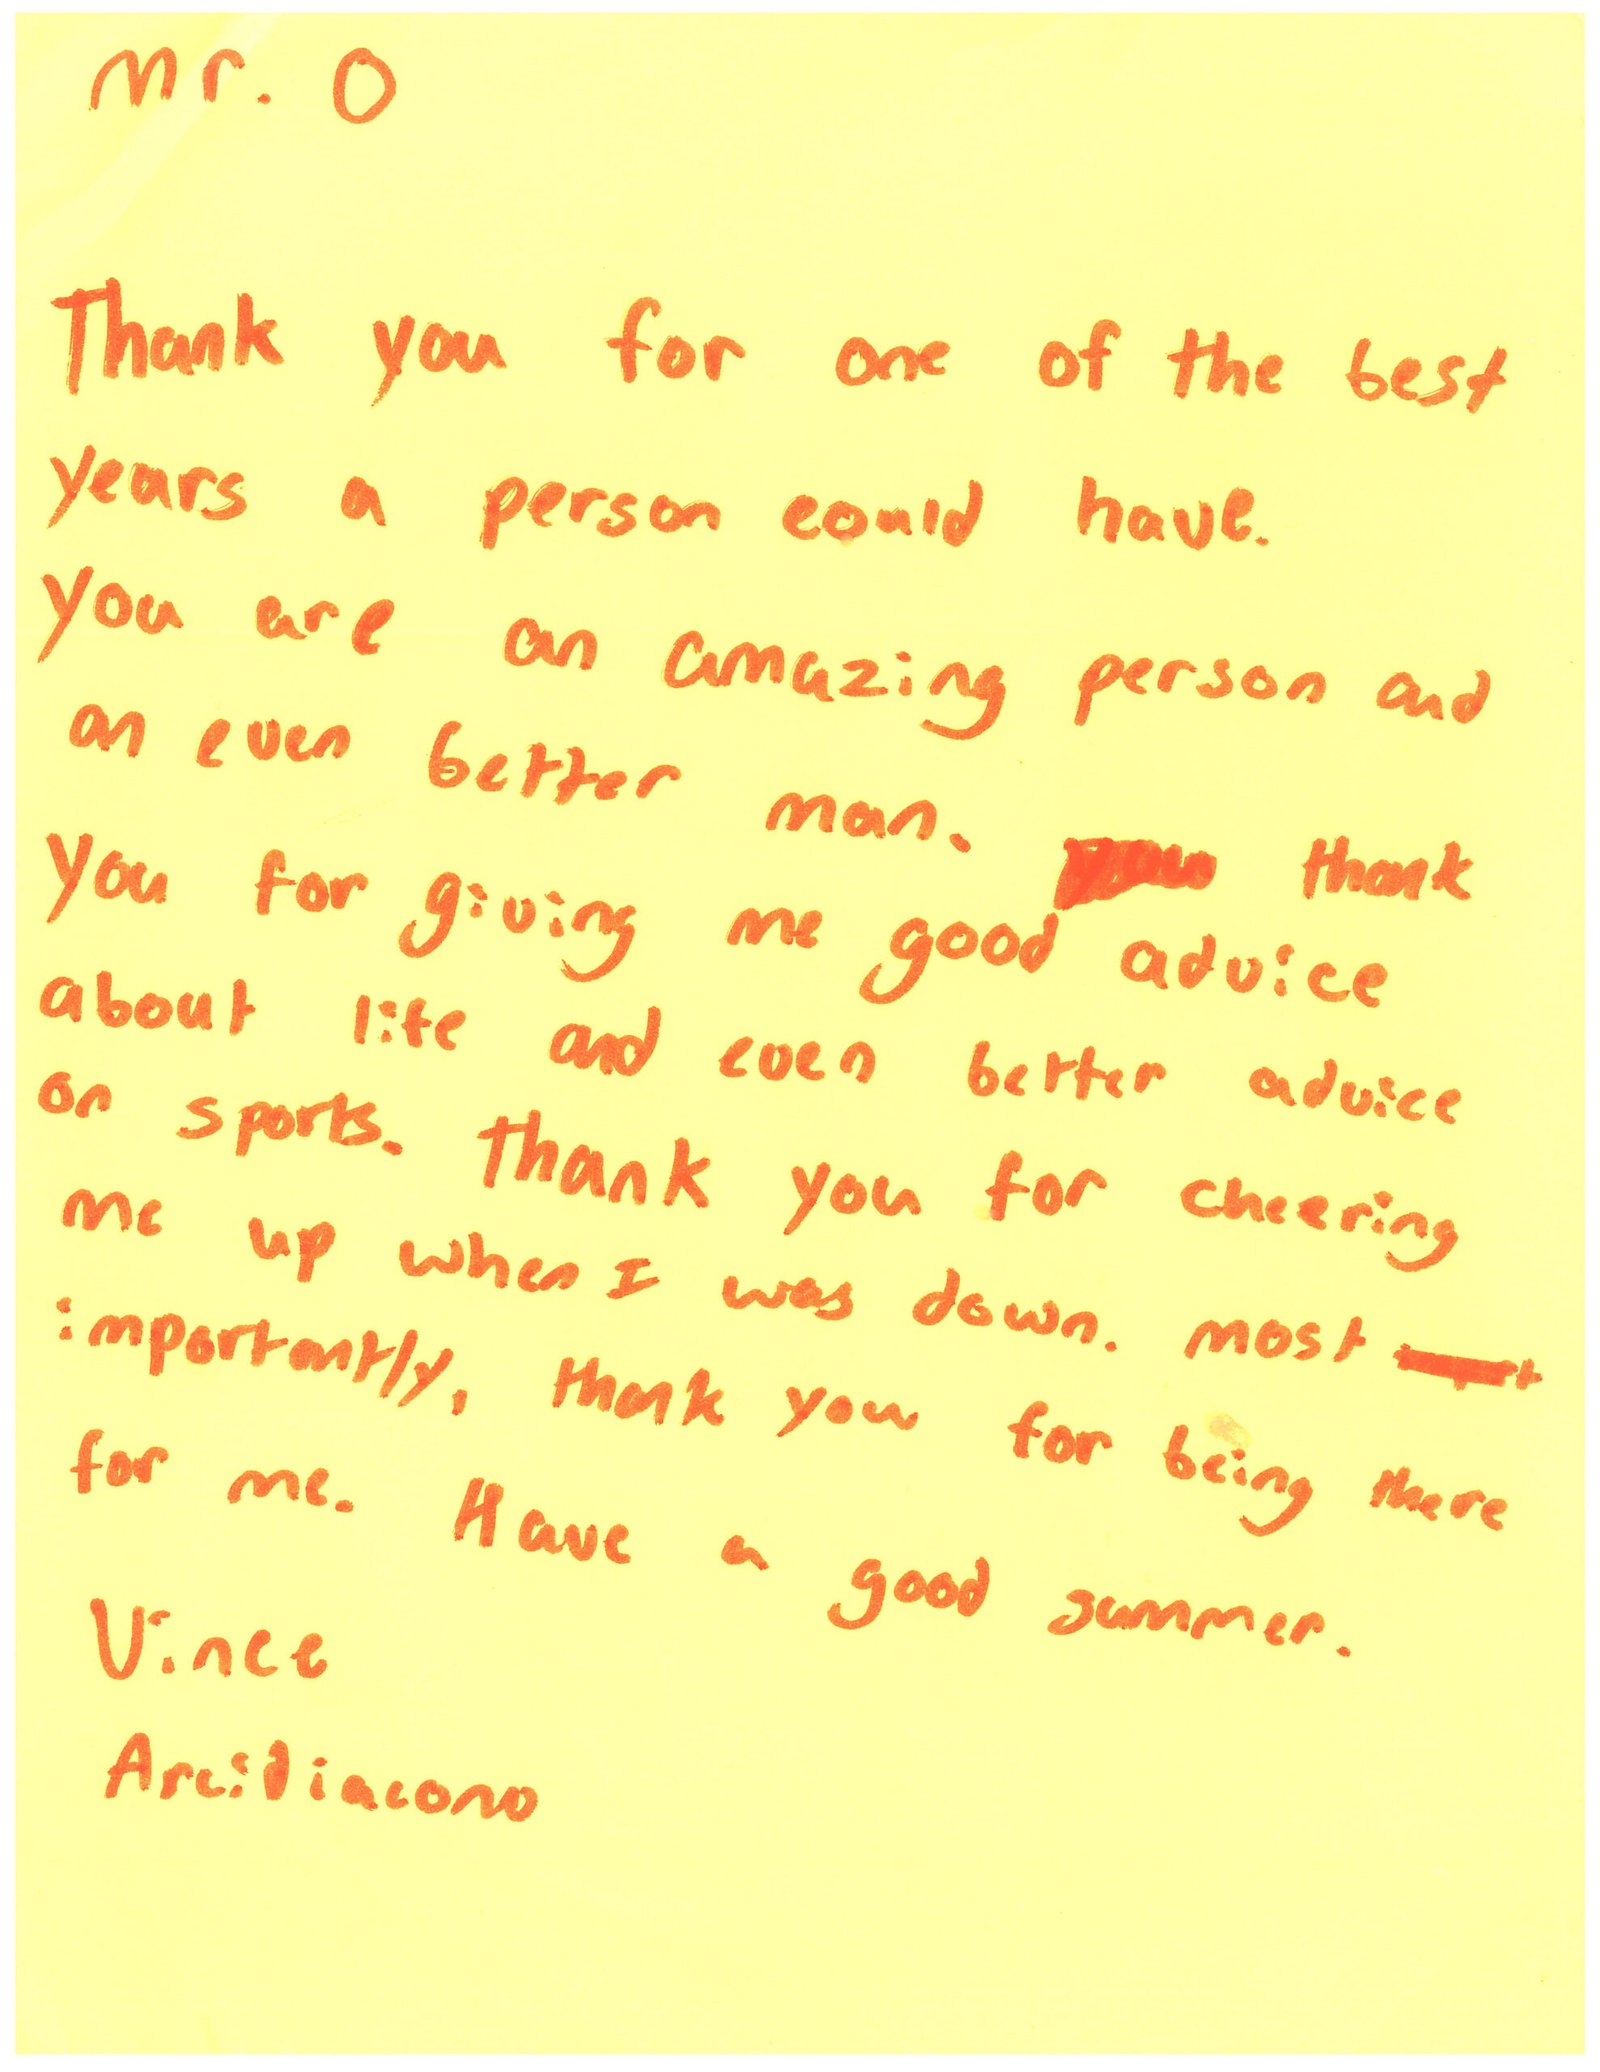 Mr. O
Thank you for one of the best
years a person could have.
You are an amazing person and
an even better man. thank
you for giving me good advice
about life and even better advice
on sports. Thank you for cheering
me up when I was down. most
importantly, thank you for being there
for me. Have a good summer.
Vince
Arcidiacono